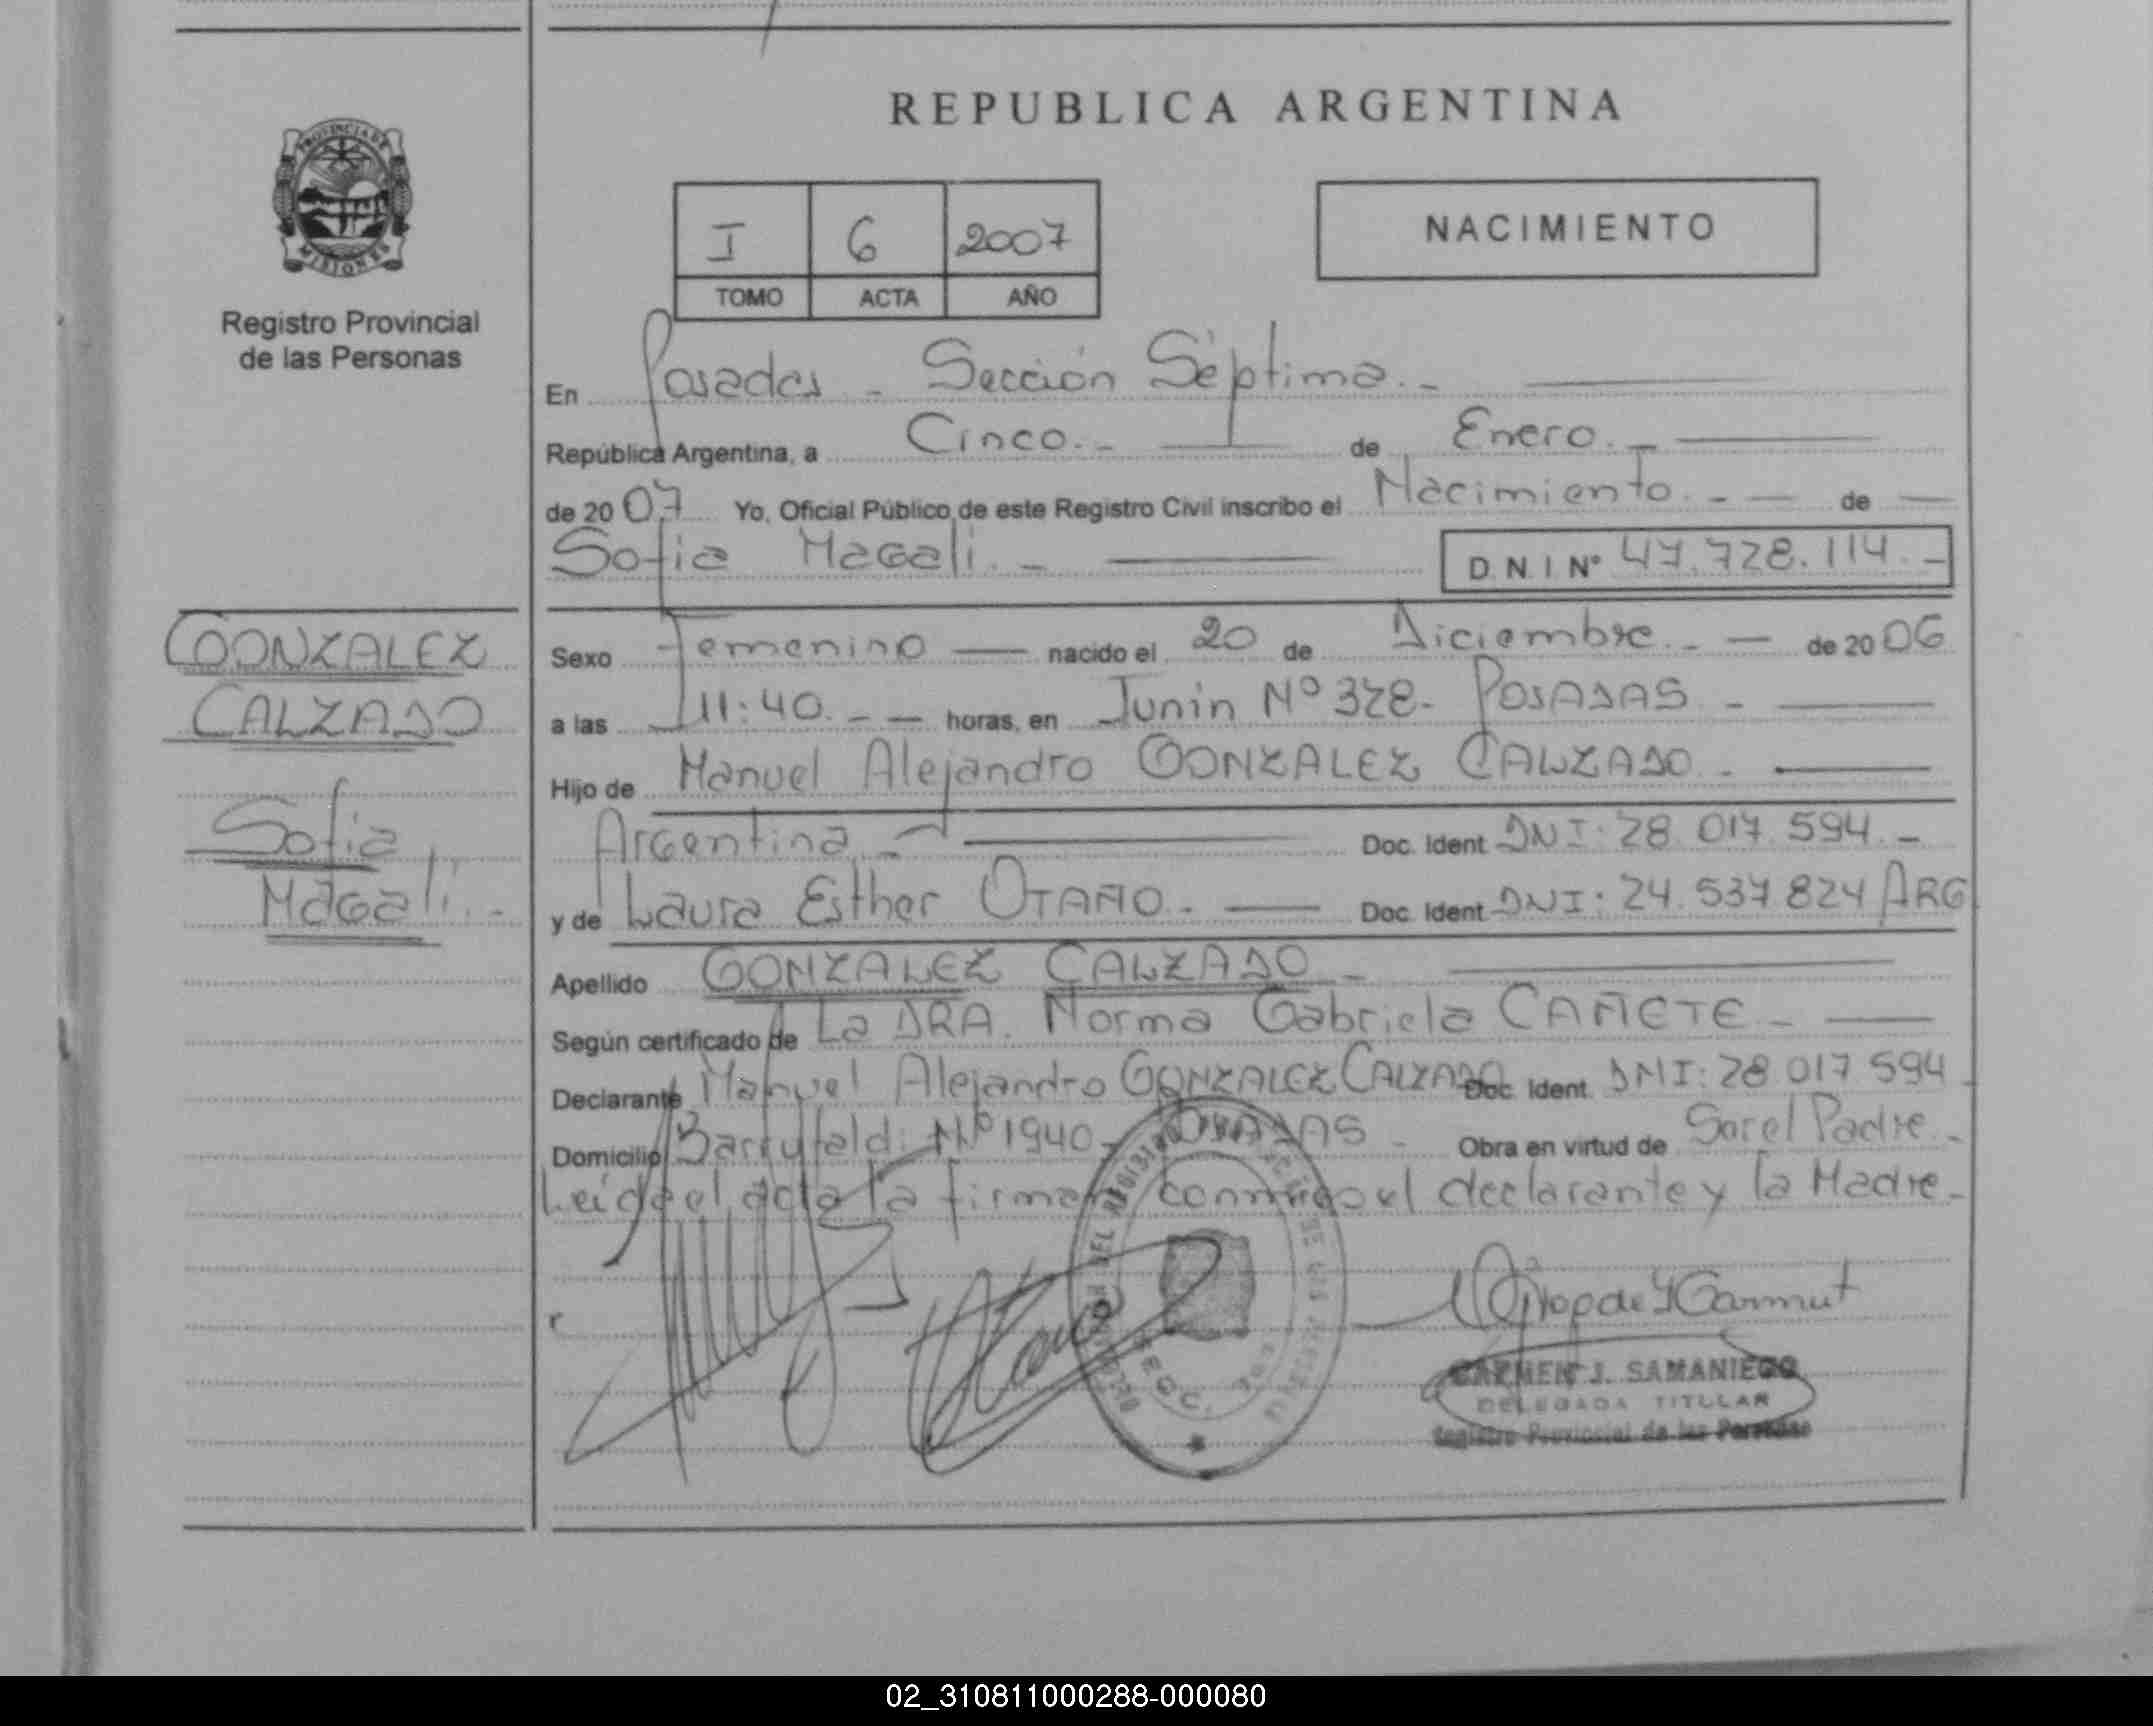 REPUBLICA ARGENTINA
PROVINCIA DE
MISIONES
Registro Provincial
de las Personas
I 6 2007
TOMO ACTA AÑO
NACIMIENTO
En Posadas - Sección Séptima.-
República Argentina, a Cinco.- de Enero.-
de 2007 Yo, Oficial Público de este Registro Civil inscribo el Nacimiento.- - de
Sofia Magali.- D.N.I Nº 47.728.114.-
GONZALEZ
CALZADO
Sofia
Magali.-
Sexo Femenino nacido el 20 de Diciembre.- - de 2006
a las 11:40.- - horas, en Junin Nº 328- POSADAS -
Hijo de Manuel Alejandro GONZALEZ CALZADO.-
Argentina.- Doc. Ident. DNI: 28.017.594.-
y de Laura Esther OTAÑO.- Doc. Ident. DNI: 24.537.824 ARG
Apellido GONZALEZ CALZADO -
Según certificado de La DRA. Norma Gabriela CAÑETE -
Declarante Manuel Alejandro GONZALEZ CALZADO Doc. Ident. DNI: 28.017.594
Domicilio Nº 1940- POSADAS - Obra en virtud de Ser el Padre.-
Leida el acta la firman conmigo el declarante y la Madre.-
CARMEN J. SAMANIEGO
DELEGADA TITULAR
Registro Provincial de las Personas
02_310811000288-000080